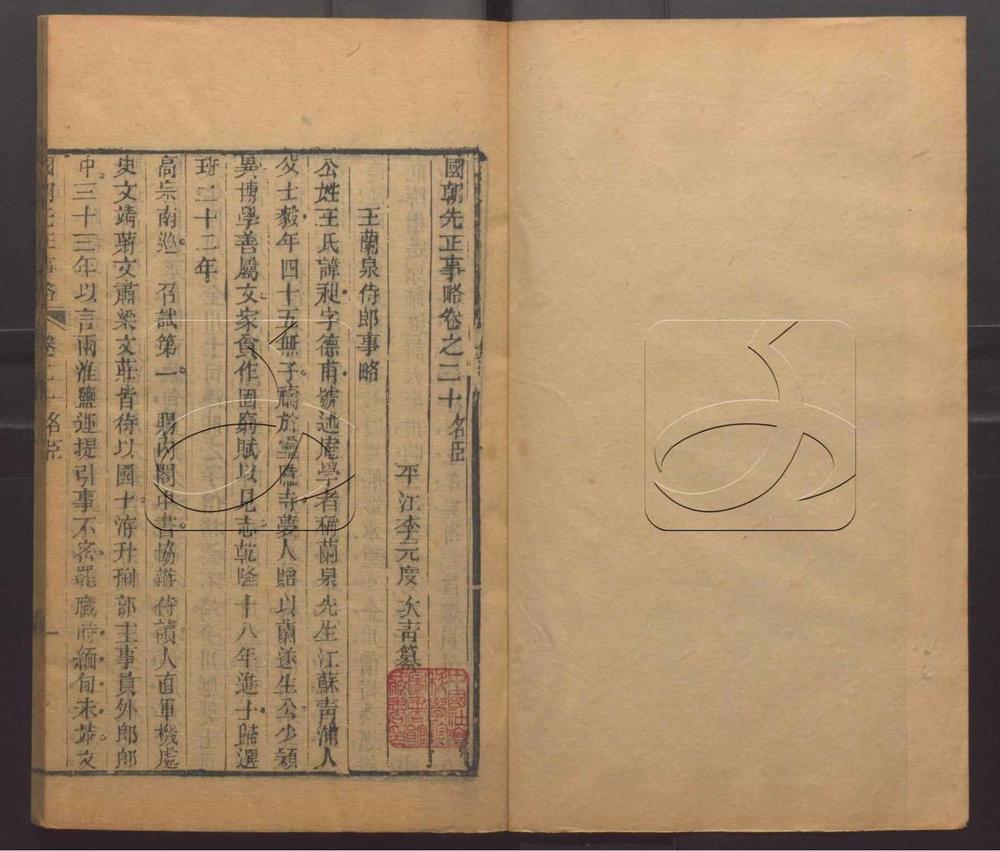 國朝先正事略卷之二十 名臣
平江李元度次青纂
王蘭泉侍郎事略
公姓王氏諱昶字德甫號述庵學者稱蘭泉先生江蘇青浦人
父士毅年四十五無子禱於靈隱寺夢人貽以蘭遂生公少穎
異博學善屬文家貧作固窮賦以見志乾隆十八年進士歸選
班二十二年
高宗南巡 召試第一 賜內閣中書協辦侍讀入直軍機處
史文靖蔣文肅梁文莊皆待以國士洊升刑部主事員外郎郎
中三十三年以言兩淮鹽運提引事不密罷職時緬甸未靖文
國朝先正事略 卷二十 名臣 一
中國社會科學院
藏書